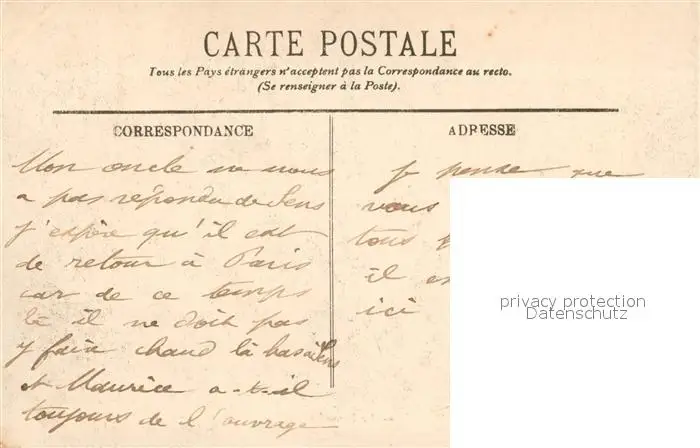 CARTE POSTALE
Tous les Pays étrangers n'acceptent pas la Correspondance au recto.
(Se renseigner à la Poste).
CORRESPONDANCE
Mon oncle ne nous
a pas répondu de Sens
j'espère qu'il est
de retour à Paris
car de ce temps
là il ne doit pas
y faire chaud là bas à Sens
et Maurice a-t-il
toujours de l'ouvrage
ADRESSE
je pense que
vous
tous
il es
ici
privacy protection
Datenschutz